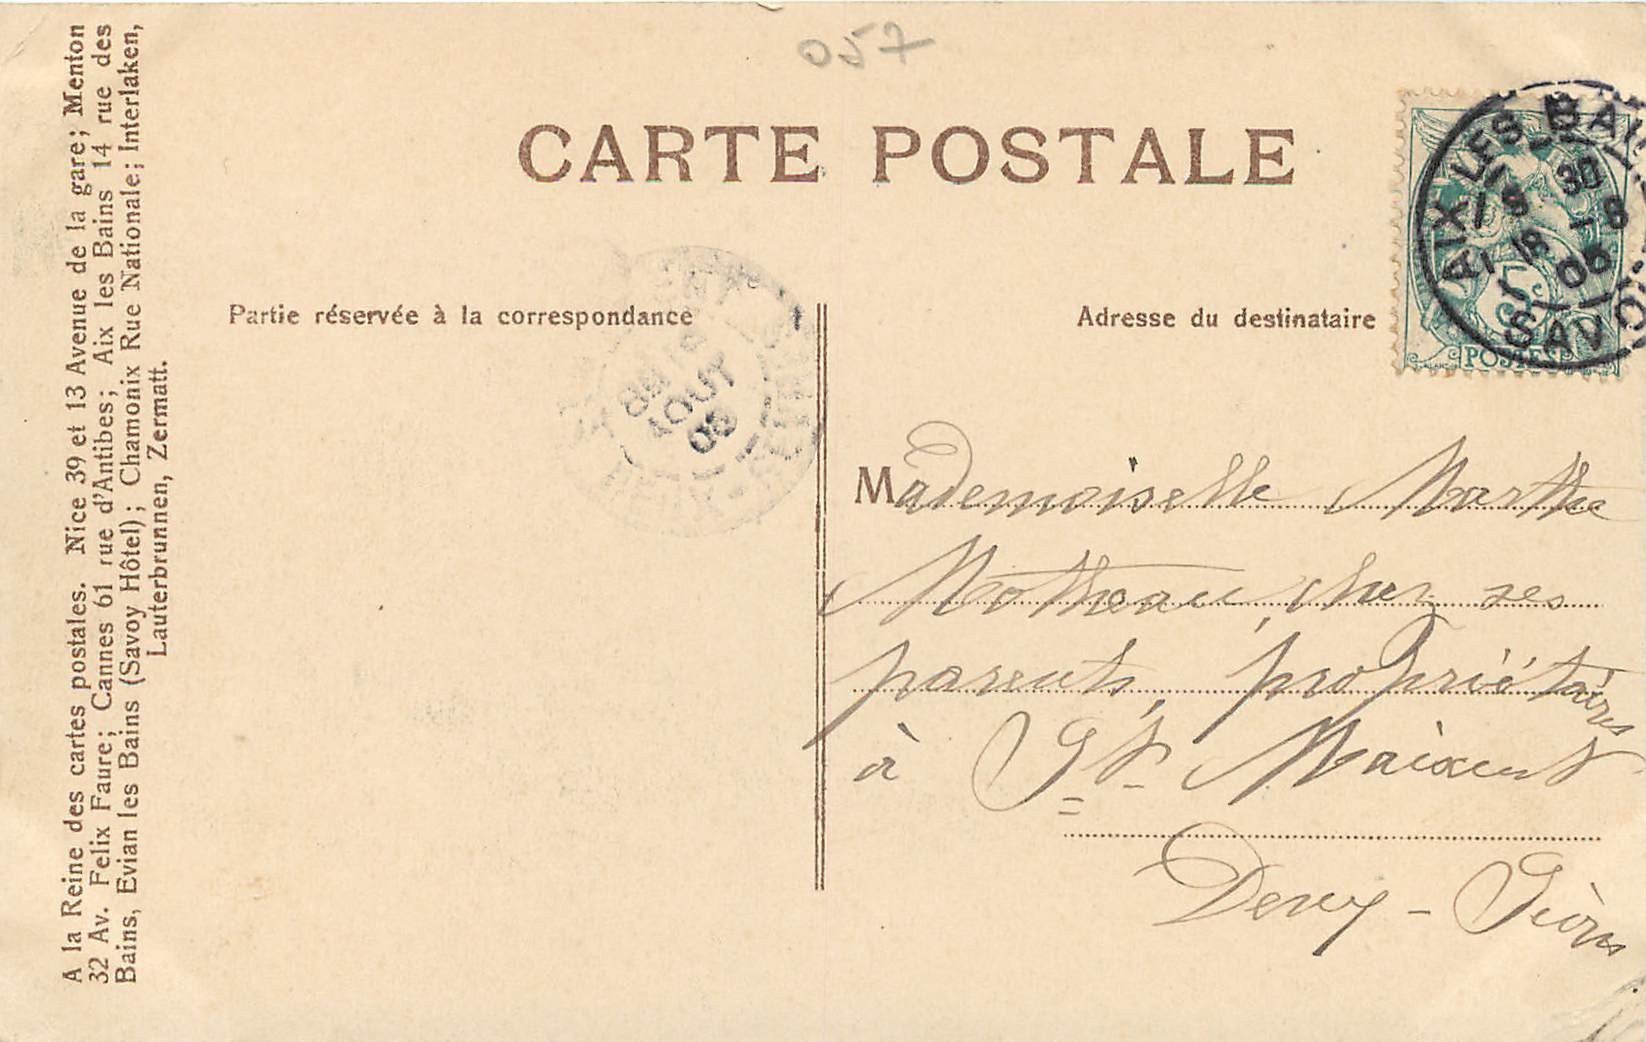 057
CARTE POSTALE
A la Reine des cartes postales. Nice 39 et 13 Avenue de la gare; Menton
32 Av. Felix Faure; Cannes 61 rue d'Antibes; Aix les Bains 14 rue des
Bains, Evian les Bains (Savoy Hôtel); Chamonix Rue Nationale; Interlaken,
Lauterbrunnen, Zermatt.
Partie réservée à la correspondance
Adresse du destinataire
AIX LES BAINS
18 30
18 -8
06
SAVOIE
POSTES
5
AOUT
06
Mademoiselle Marthe
Motheau, chez ses
parents, propriétaires
à St Maixent
Deux-Sèvres